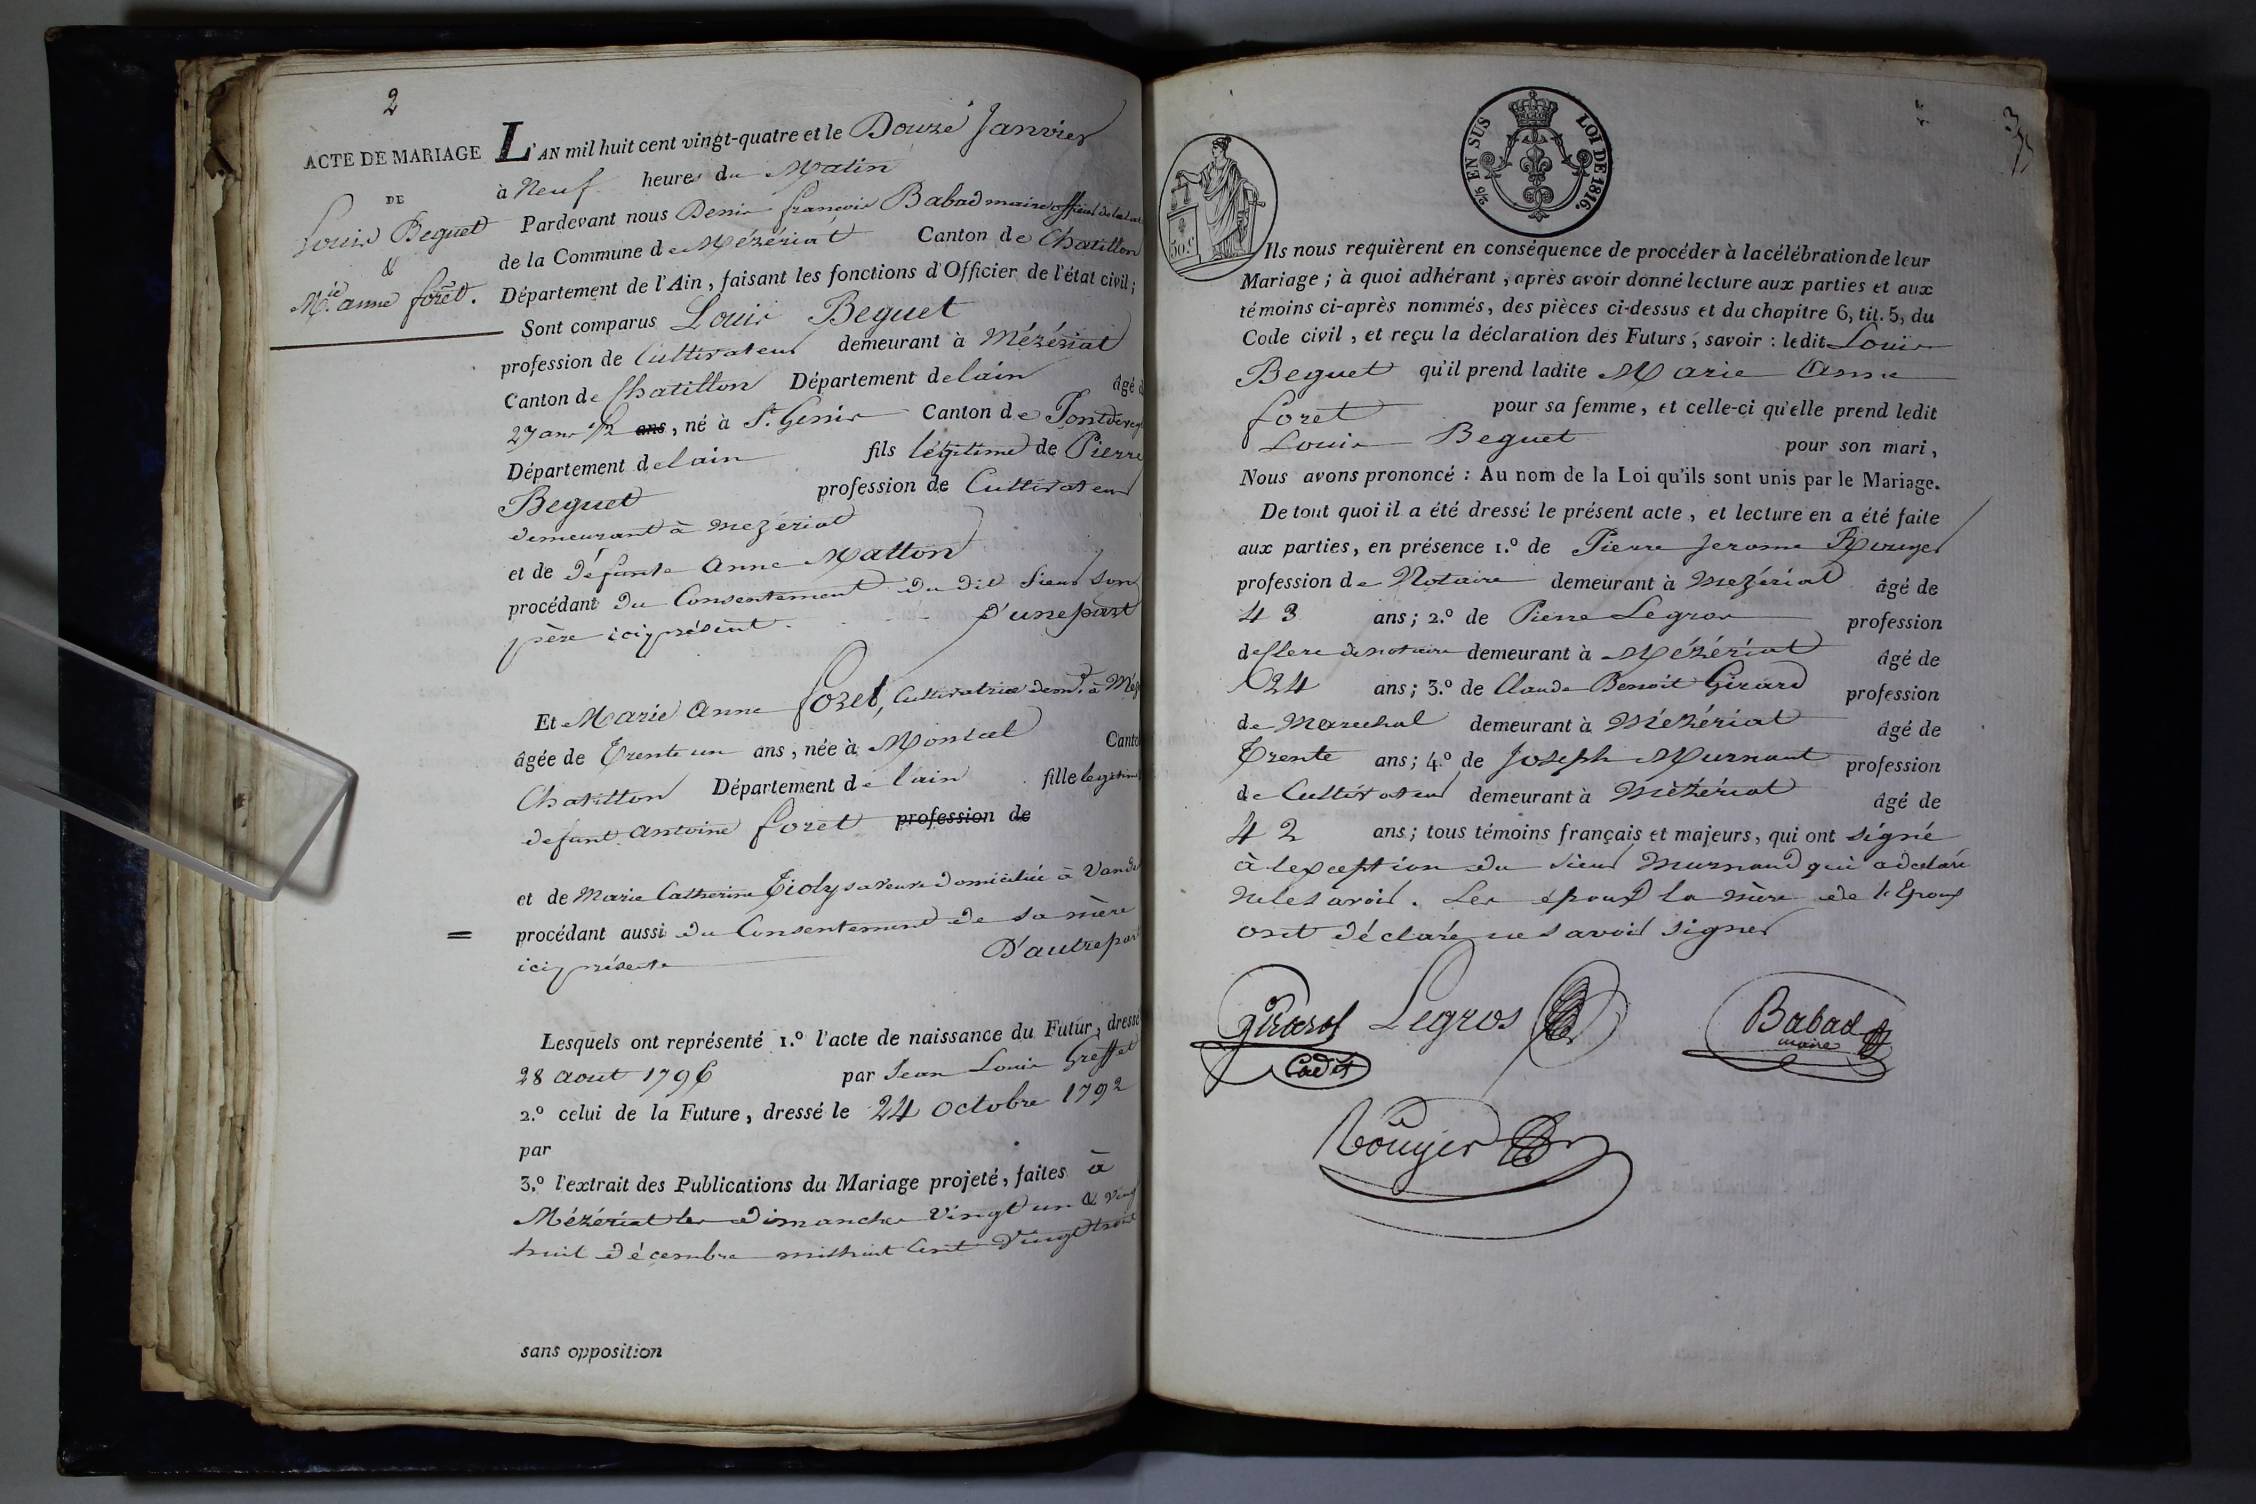 2
ACTE DE MARIAGE
DE
Louis Beguet
&
M.ie anne foret.
L'AN mil huit cent vingt-quatre et le Douze Janvier
à Neuf heures du Matin
Pardevant nous Denis françois Babad maire officier de
de la Commune de Mézériat Canton de Chatillon
Département de l'Ain, faisant les fonctions d'Officier de l'état civil;
Sont comparus Louis Beguet
profession de Cultivateur demeurant à Mézériat
Canton de Chatillon Département de lain âgé d
27 ans 1/2 ans, né à St. Genis Canton de Pontdevey
Département de lain fils légitime de Pierre
Beguet profession de Cultivateur
demeurant à mezériat
et de défunte Anne Matton
procédant du Consentement du dit Sieur son
père icy présent. D'une part
Et Marie Anne foret, Cultivatrice dem.t à Méz
âgée de Trente un ans, née à Montcel Canto
Chatillon Département de lain fille legitim
defunt Antoine foret profession de
et de Marie Catherine Tioly sa veuve domiciliée à Vande
= procédant aussi du Consentement de sa mère
icy présente D'autre part
Lesquels ont représenté 1.º l'acte de naissance du Futur, dressé
28 aout 1796 par Jean Louis Greffet
2.º celui de la Future, dressé le 24 octobre 1792
par
3.º l'extrait des Publications du Mariage projeté, faites à
Mézériat les dimanches vingt un & ving
huit décembre mil huit Cent vingt trois
sans opposition
2/6 EN SUS LOI DE 1816.
50.c
3
Ils nous requièrent en conséquence de procéder à la célébration de leur
Mariage; à quoi adhérant, après avoir donné lecture aux parties et aux
témoins ci-après nommés, des pièces ci-dessus et du chapitre 6, tit. 5, du
Code civil, et reçu la déclaration des Futurs, savoir: ledit Louis
Beguet qu'il prend ladite Marie Anne
foret pour sa femme, et celle-ci qu'elle prend ledit
Louis Beguet pour son mari,
Nous avons prononcé: Au nom de la Loi qu'ils sont unis par le Mariage.
De tout quoi il a été dressé le présent acte, et lecture en a été faite
aux parties, en présence 1.º de Pierre Jerome Rouyer
profession de Notaire demeurant à mezériat âgé de
43 ans; 2.º de Pierre Legros profession
de Clerc de notaire demeurant à Mézériat âgé de
24 ans; 3.º de Claude Benoit Girard profession
de Marechal demeurant à Mézériat âgé de
Trente ans; 4.º de Joseph Murnant profession
de Cultivateur demeurant à Mézériat âgé de
42 ans; tous témoins français et majeurs, qui ont signé
à lexception du Sieur Murnand qui a declaré
ne le savoir. Les époux la mère de l'Epoux
ont déclaré ne savoir signer
Girard Cadet
Legros
Babad maire
Rouyer